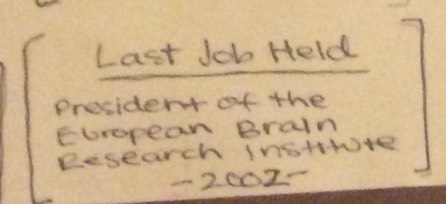 Last Job Held
President of the
European Brain
Research Institute
-2002-